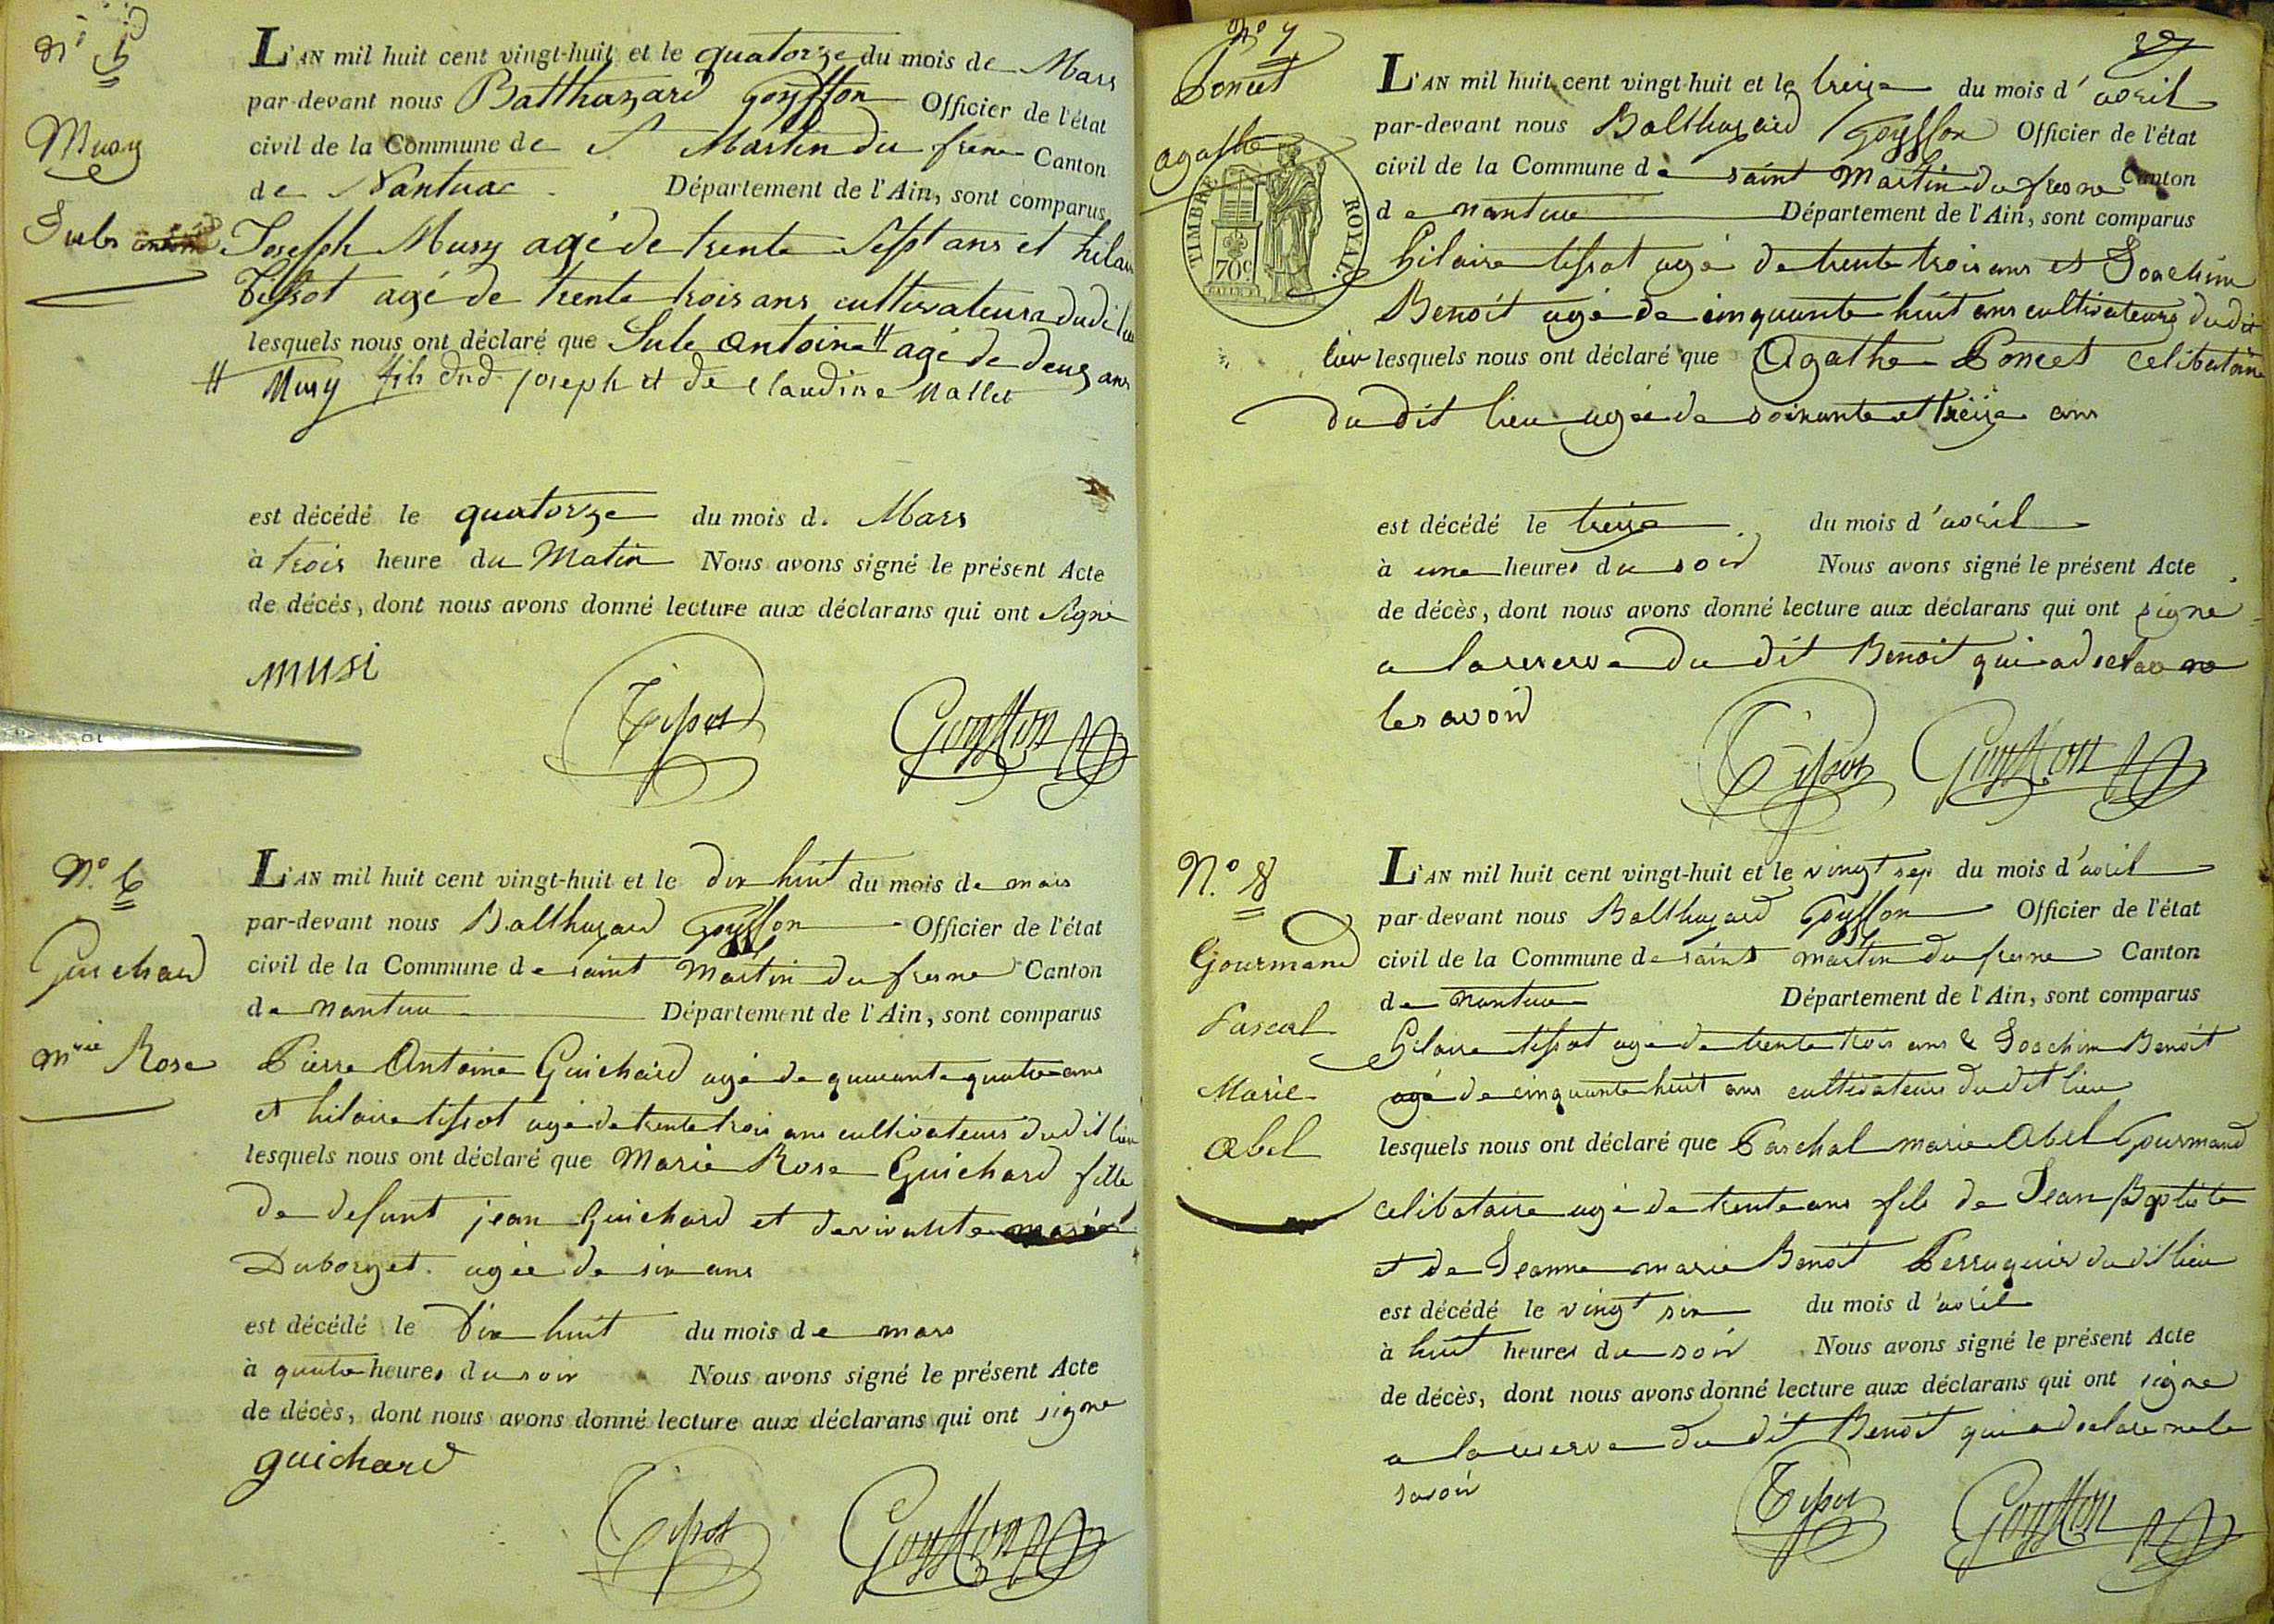 N° 5
Musy
Jule
L'AN mil huit cent vingt-huit et le quatorze du mois de Mars
par-devant nous Balthazard Goyffon Officier de l'état
civil de la Commune de St Martin du frêne Canton
de Nantua Département de l'Ain, sont comparus
Joseph Musy agé de trente Sept ans et hilaire
Tissot agé de trente trois ans cultivateurs dudit lieu
lesquels nous ont déclaré que Jule Antoine # agé de deux ans
# Musy fils dud. joseph et de Claudine Mallet
est décédé le quatorze du mois d. Mars
à trois heure du Matin Nous avons signé le présent Acte
de décès, dont nous avons donné lecture aux déclarans qui ont Signé
musi
Tissot Goyffon
N.° 6
Guichard
mrie Rose
L'AN mil huit cent vingt-huit et le dix huit du mois de mars
par-devant nous Balthazard Goyffon Officier de l'état
civil de la Commune de saint Martin du fresne Canton
de nantua Département de l'Ain, sont comparus
Pierre Antoine Guichard agé de quarante quatre ans
et hilaire tissot agé de trente trois ans cultivateurs dudit lieu
lesquels nous ont déclaré que Marie Rose Guichard fille
de defunt jean Guichard et de vivante marie
Duborget. agée de six ans
est décédé le dix huit du mois de mars
à quatre heures du soir Nous avons signé le présent Acte
de décès, dont nous avons donné lecture aux déclarans qui ont signe
guichard
Tissot Goyffon
N° 7
Poncet
agathe
TIMBRE ROYAL
70c
L'AN mil huit cent vingt-huit et le treize du mois d'avril
par-devant nous Balthazard Goyffon Officier de l'état
civil de la Commune de saint Martin du fresne Canton
de nantua Département de l'Ain, sont comparus
hilaire tissot agé de trente trois ans et Joachim
Benoit agé de cinquante huit ans cultivateurs du dit
lieu lesquels nous ont déclaré que Agathe Poncet celibataire
du dit lieu agée de soixante et treize ans
est décédé le treize du mois d'avril
à une heures du soir Nous avons signé le présent Acte
de décès, dont nous avons donné lecture aux déclarans qui ont signé
a la reserve du dit Benoit qui a declare ne
les avoir
Tissot Goyffon
N.° 8
Gourmand
Pascal
Marie
Abel
L'AN mil huit cent vingt-huit et le vingt sep du mois d'avril
par-devant nous Balthazard Goyffon Officier de l'état
civil de la Commune de saint martin du fresne Canton
de Nantua Département de l'Ain, sont comparus
hilaire tissot agé de trente trois ans & Joachim Benoit
agé de cinquante huit ans cultivateurs du dit lieu
lesquels nous ont déclaré que Paschal marie Abel Gourmand
celibataire agé de trente ans fils de Jean Baptiste
et de Jeanne marie Benoit Perruquier du dit lieu
est décédé le vingt six du mois d'avril
à huit heures du soir Nous avons signé le présent Acte
de décès, dont nous avons donné lecture aux déclarans qui ont signe
a la reserve du dit Benoit qui a declare ne le
savoir
Tissot Goyffon